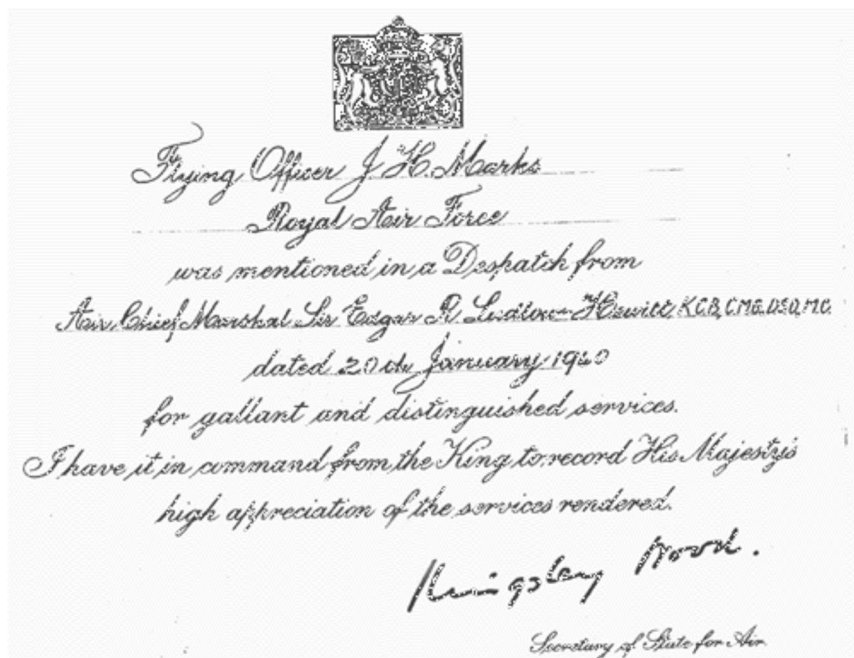 Flying Officer J. H. Marks
Royal Air Force
was mentioned in a Despatch from
Air Chief Marshal Sir Edgar R. Ludlow-Hewitt, K.C.B., C.M.G., D.S.O., M.C.
dated 20th January 1940
for gallant and distinguished services.
I have it in command from the King to record His Majesty's
high appreciation of the services rendered.
Kingsley Wood.
Secretary of State for Air